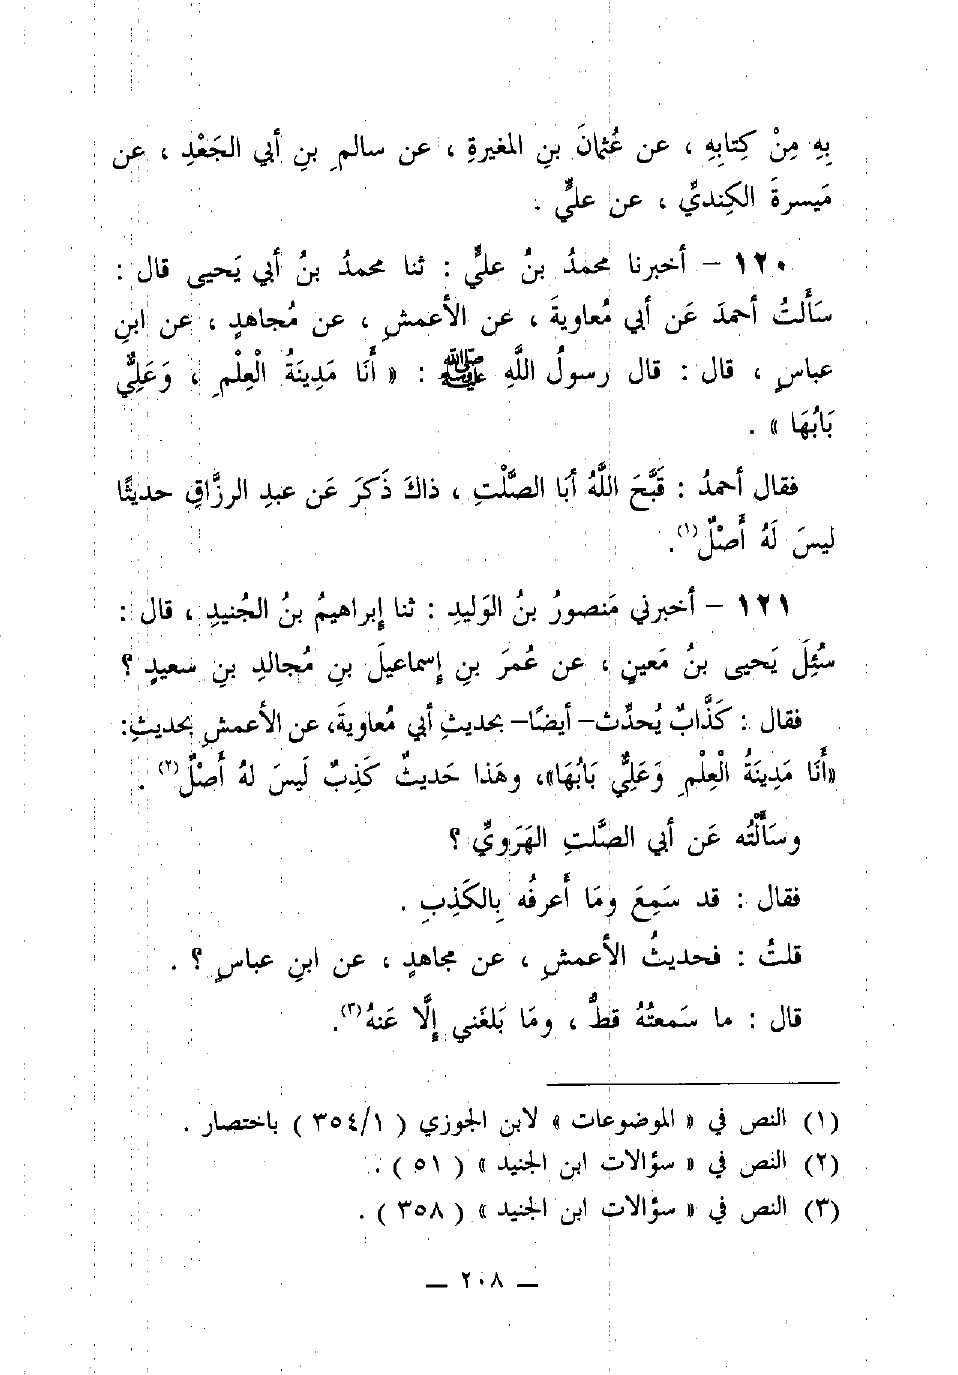 بِهِ مِنْ كِتابِهِ ، عن عُثمانَ بنِ المغيرةِ ، عن سالمِ بنِ أبي الجَعْدِ ، عن
مَيسرةَ الكِنديِّ ، عن عليٍّ .
١٢٠ – أخبرنا محمدُ بنُ عليٍّ : ثنا محمدُ بنُ أبي يَحيى قال :
سَأَلتُ أحمدَ عَن أبي مُعاويةَ ، عن الأعمشِ ، عن مُجاهدٍ ، عن ابنِ
عباسٍ ، قال : قال رسولُ اللَّهِ ﷺ : « أَنَا مَدِينَةُ الْعِلْمِ ، وَعَلِيٌّ
بَابُهَا » .
فقال أحمدُ : قَبَّحَ اللَّهُ أبَا الصَّلْتِ ، ذاكَ ذَكَرَ عَن عبدِ الرزَّاقِ حديثًا
ليسَ لَهُ أَصْلٌ(١).
١٢١ – أخبرني مَنصورُ بنُ الوَليدِ : ثنا إبراهيمُ بنُ الجُنيدِ ، قال :
سُئِلَ يَحيى بنُ مَعينٍ ، عن عُمرَ بنِ إسماعيلَ بنِ مُجالدِ بنِ سعيدٍ ؟
فقال : كَذَّابٌ يُحدِّث – أيضًا – بحديثِ أبي مُعاويةَ، عن الأعمشِ بحديثِ:
«أَنَا مَدِينَةُ الْعِلْمِ وَعَلِيٌّ بَابُهَا»، وهَذا حَديثٌ كَذِبٌ لَيسَ لهُ أَصْلٌ(٢) .
وسَأَلْتُه عَن أبي الصَّلتِ الهَرَويِّ ؟
فقال : قد سَمِعَ ومَا أَعرفُه بِالكَذِبِ .
قلتُ : فحديثُ الأعمشِ ، عن مجاهدٍ ، عن ابنِ عباسٍ ؟ .
قال : ما سَمعتُهُ قطُّ ، ومَا بَلغَني إِلَّا عَنهُ(٣).
(١) النص في « الموضوعات » لابن الجوزي ( ٣٥٤/١ ) باختصار .
(٢) النص في « سؤالات ابن الجنيد » ( ٥١ ) .
(٣) النص في « سؤالات ابن الجنيد » ( ٣٥٨ ) .
— ٢٠٨ —